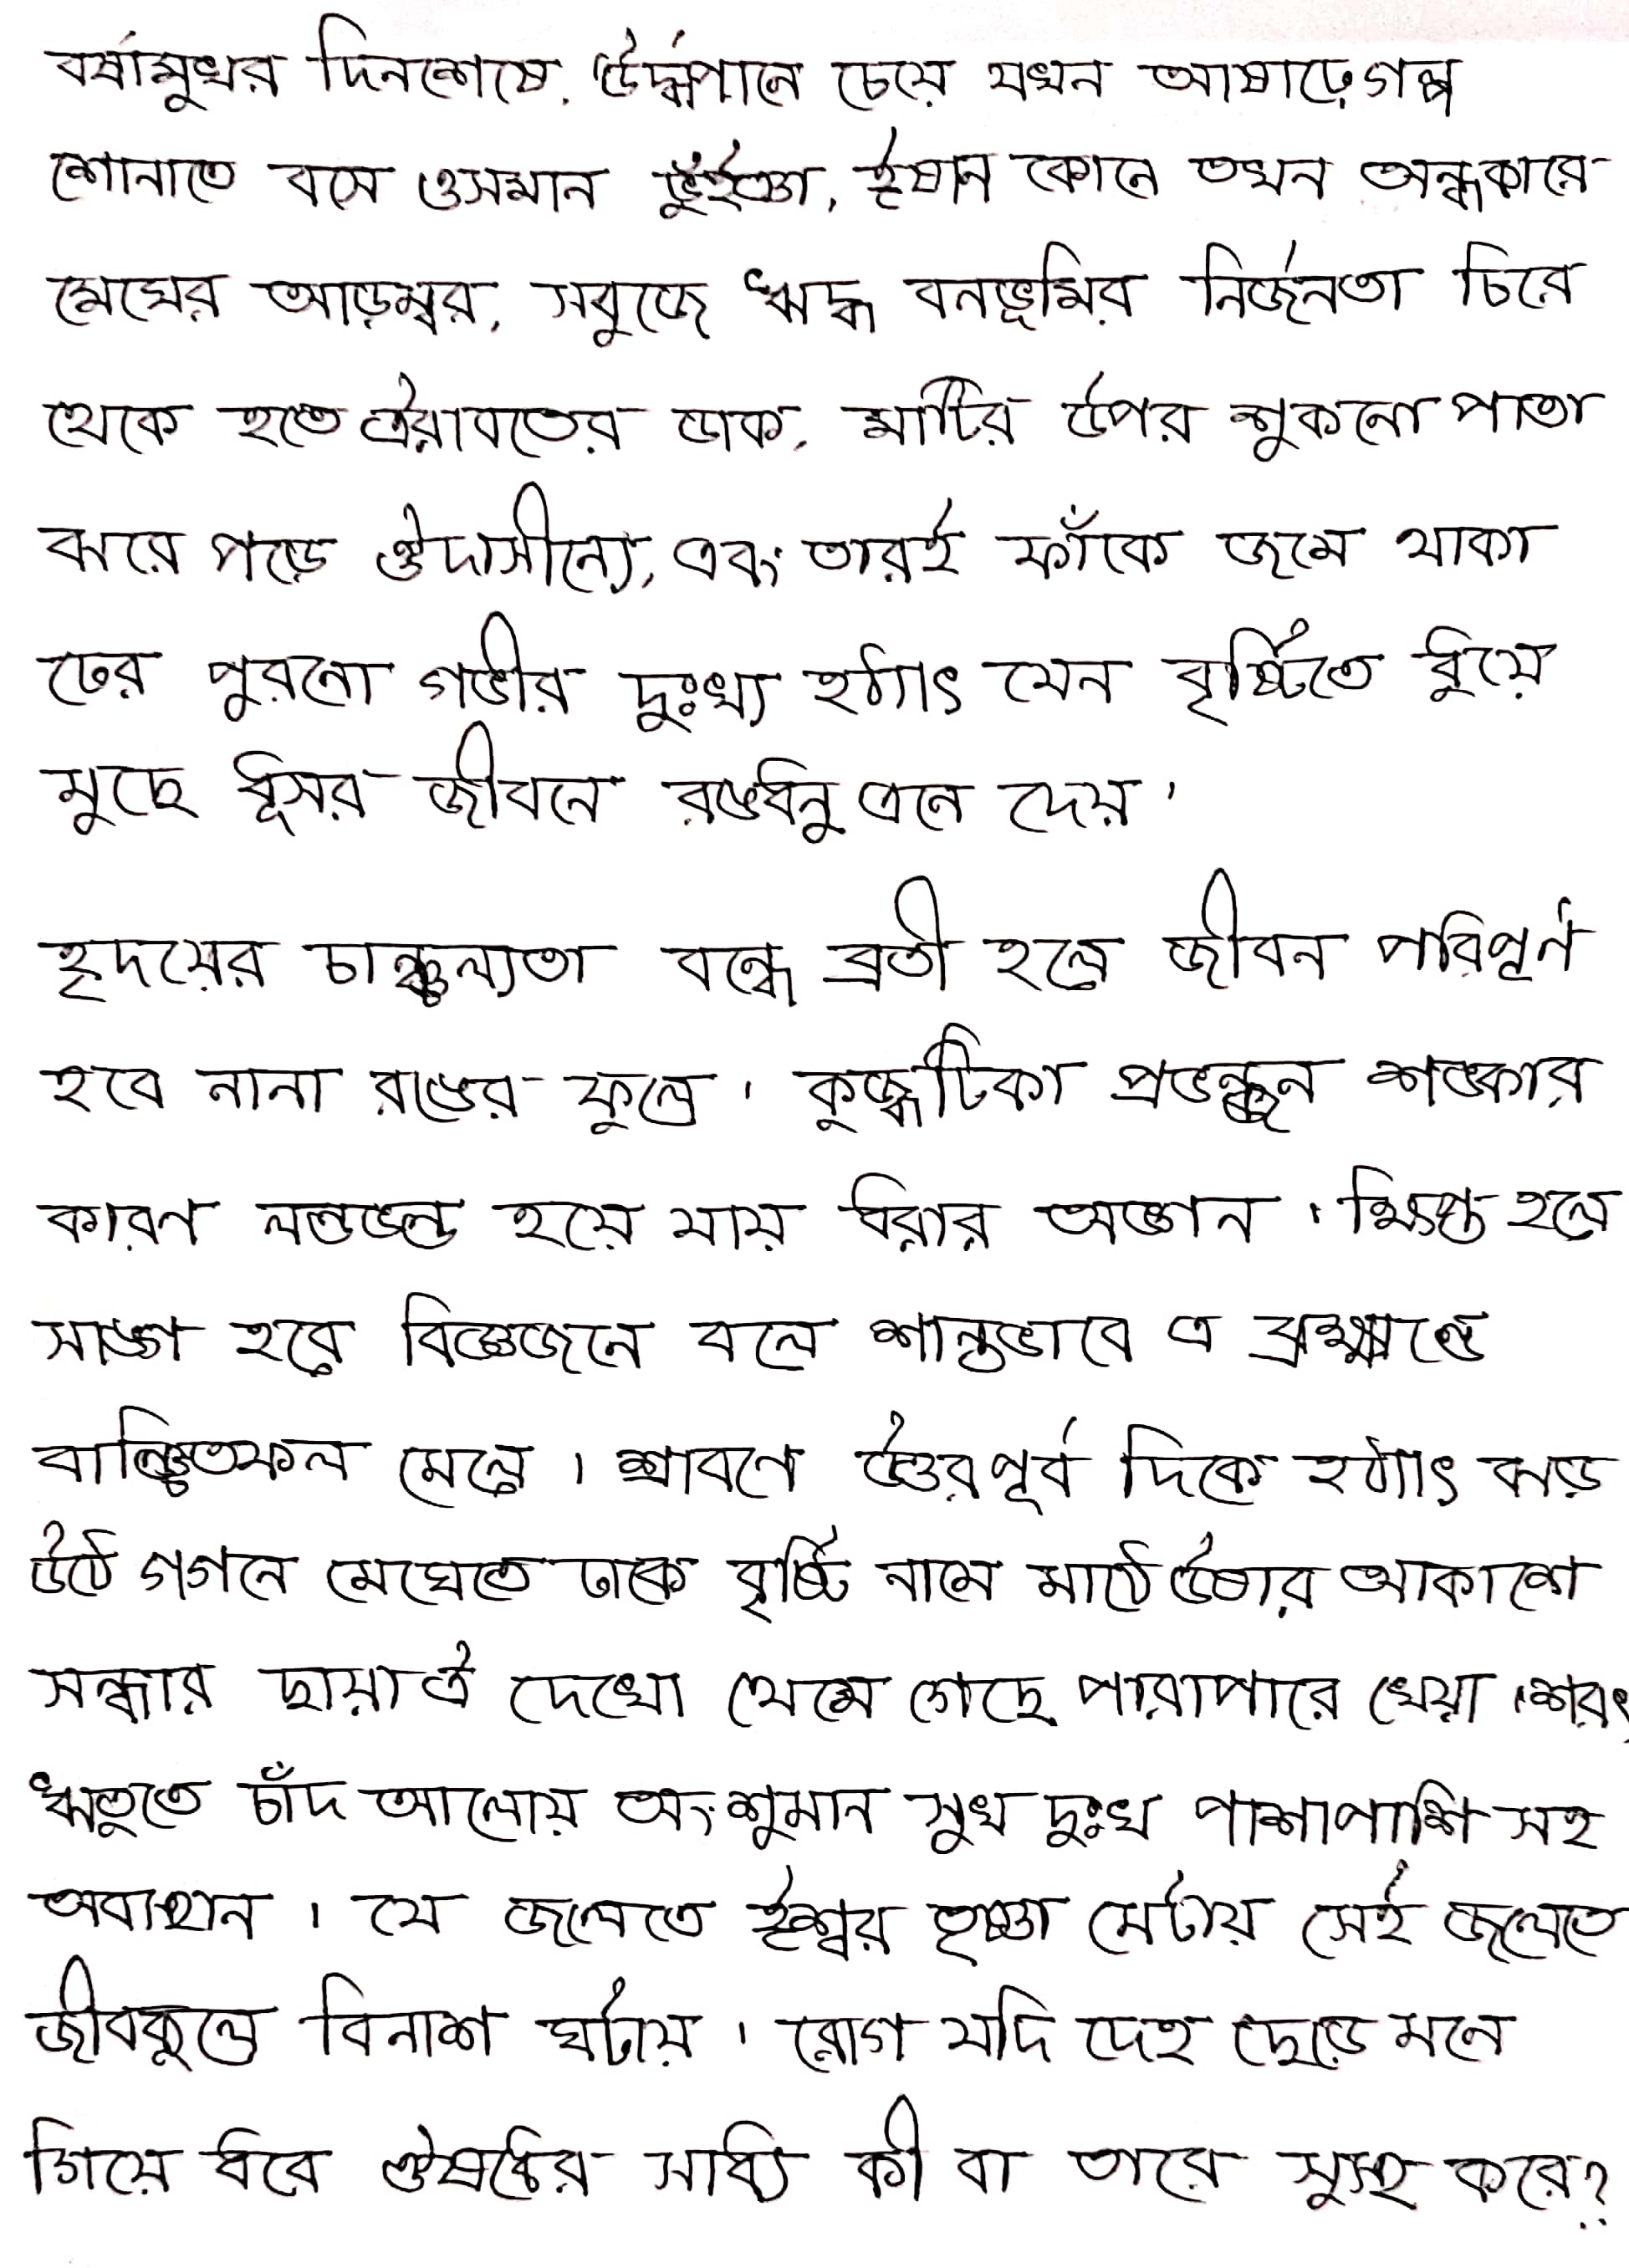 বর্ষামুখর দিনশেষে, উর্দ্ধপানে চেয়ে যখন আষাঢ়ে গল্প
শোনাতে বসে ওসমান ভুঁইঞা, ঈষান কোনে তখন অন্ধকারে
মেঘের আড়ম্বর, সবুজে ঋদ্ধ বনভূমির নির্জনতা চিরে
থেকে হতে ঐরাবতের ডাক, মাটির উপর শুকনো পাতা
ঝরে পড়ে ঔদাসীন্যে, এবং তারই ফাঁকে জমে থাকা
ঢের পুরনো গভীর দুঃখ্য হঠাৎ যেন বৃষ্টিতে ধুয়ে
মুছে ধূসর জীবনে রঙধনু এনে দেয়।
হৃদয়ের চাঞ্চল্যতা বন্ধে ব্রতী হলে জীবন পরিপূর্ণ
হবে নানা রঙের ফুলে। কুজ্ঝটিকা প্রভঞ্জন শঙ্কার
কারণ লন্ডভন্ড হয়ে যায় ধরার অঙ্গন। ক্ষিপ্ত হলে
সাঙ্গ হবে বিজ্ঞজনে বলে শান্তভাবে এ ব্রহ্মাণ্ডে
বাঞ্ছিতফল মেলে। শ্রাবণে উত্তরপূর্ব দিকে হঠাৎ ঝড়
উঠে গগনে মেঘেতে ঢাকে বৃষ্টি নামে মাঠে উষার আকাশে
সন্ধার ছায়া ঐ দেখো থেমে গেছে পারাপারে খেয়া। শরৎ
ঋতুতে চাঁদ আলোয় অংশুমান সুখ দুঃখ পাশাপাশি সহ
অবস্থান। যে জলেতে ঈশ্বর তৃষ্ণা মেটায় সেই জলেতে
জীবকুলে বিনাশ ঘটায়। রোগ যদি দেহ ছেড়ে মনে
গিয়ে ধরে ঔষধের সাধ্যি কী বা তারে সুস্থ করে?